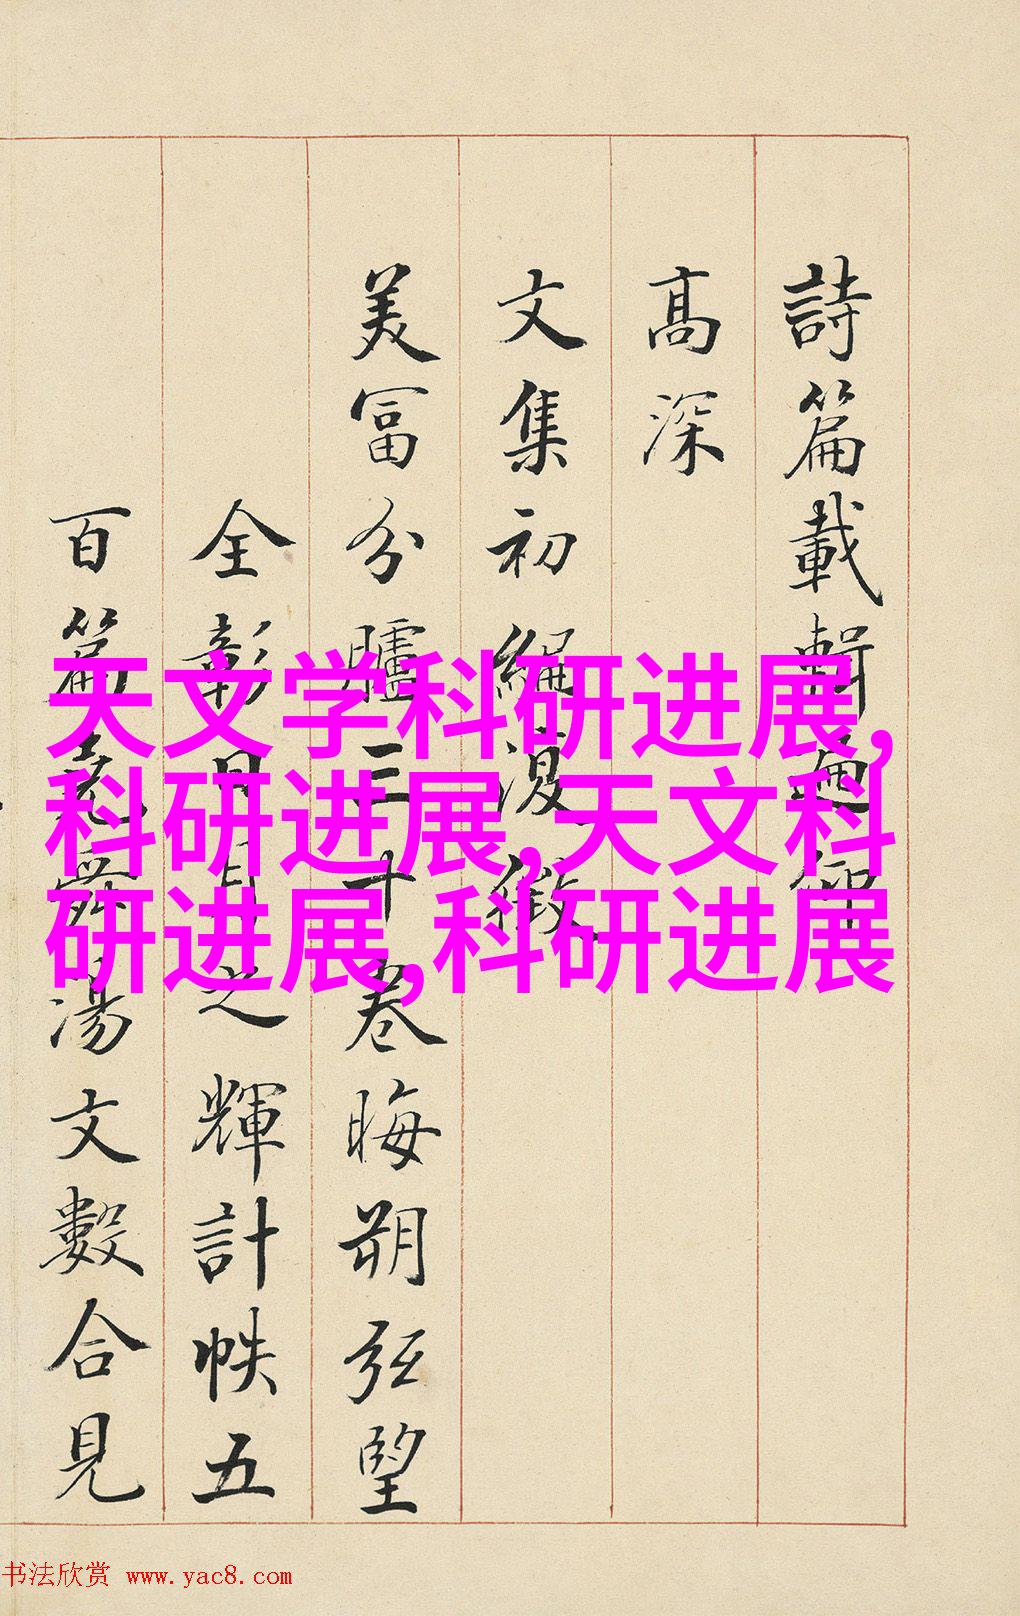 詩篇載輯仰
高深
文集初編復徵
美富分臚三十卷晦朔弦望
全彰日月之輝計帙五
百篇堯舜湯文數合見
天文学科研进展,
科研进展,天文科
研进展,科研进展
书法欣赏 www.yac8.com